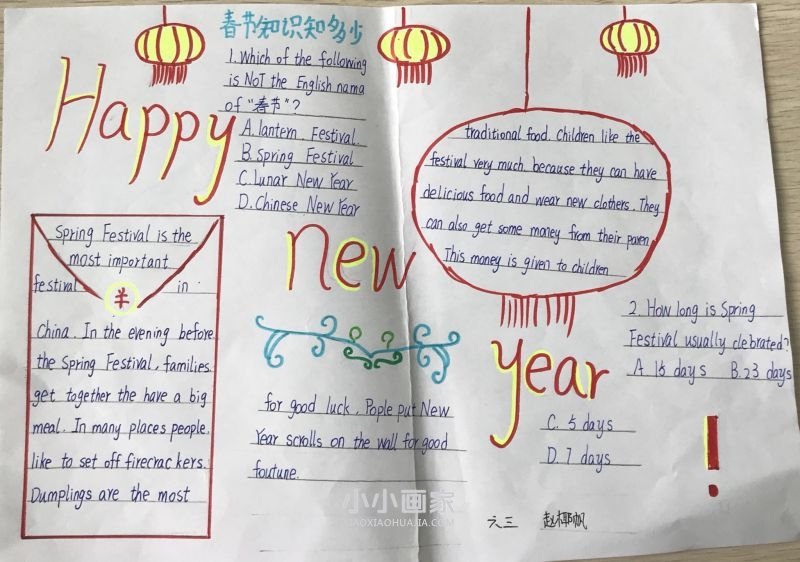 春节知识知多少
Happy
1. Which of the following
is NOT the English nama
of "春节"?
A. lantern Festival.
B. Spring Festival
C. Lunar New Year
D. Chinese New Year
Spring Festival is the
most important
festival in
羊
China. In the evening before
the Spring Festival, families
get together the have a big
meal. In many places people
like to set off firecrackers.
Dumplings are the most
traditional food. Children like the
festival very much, because they can have
delicious food and wear new clothers. They
can also get some money from their paren
This money is given to children
new
for good luck. Pople put New
Year scrolls on the wall for good
foutune.
year
!
2. How long is Spring
Festival usually clebrated?
A. 15 days B. 23 days
C. 5 days
D. 7 days
六三 赵椰帆
小小画家
XIAOXIAOHUAJIA.COM